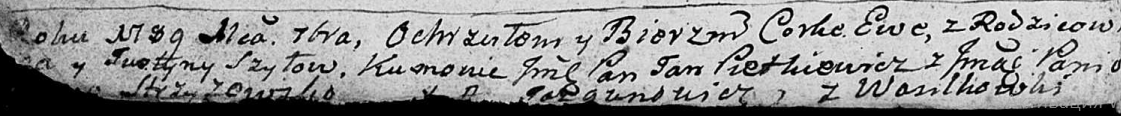 Roku 1789 Mca. 7bra, Ochrzciłem y Bierzm Corke Ewe, z Rodzicow
y Justyny Szyłow. Kumowie Jmć Pan Jan Pietkiewicz z Jmcią Panią
Strzyżewską z Wasilkowski